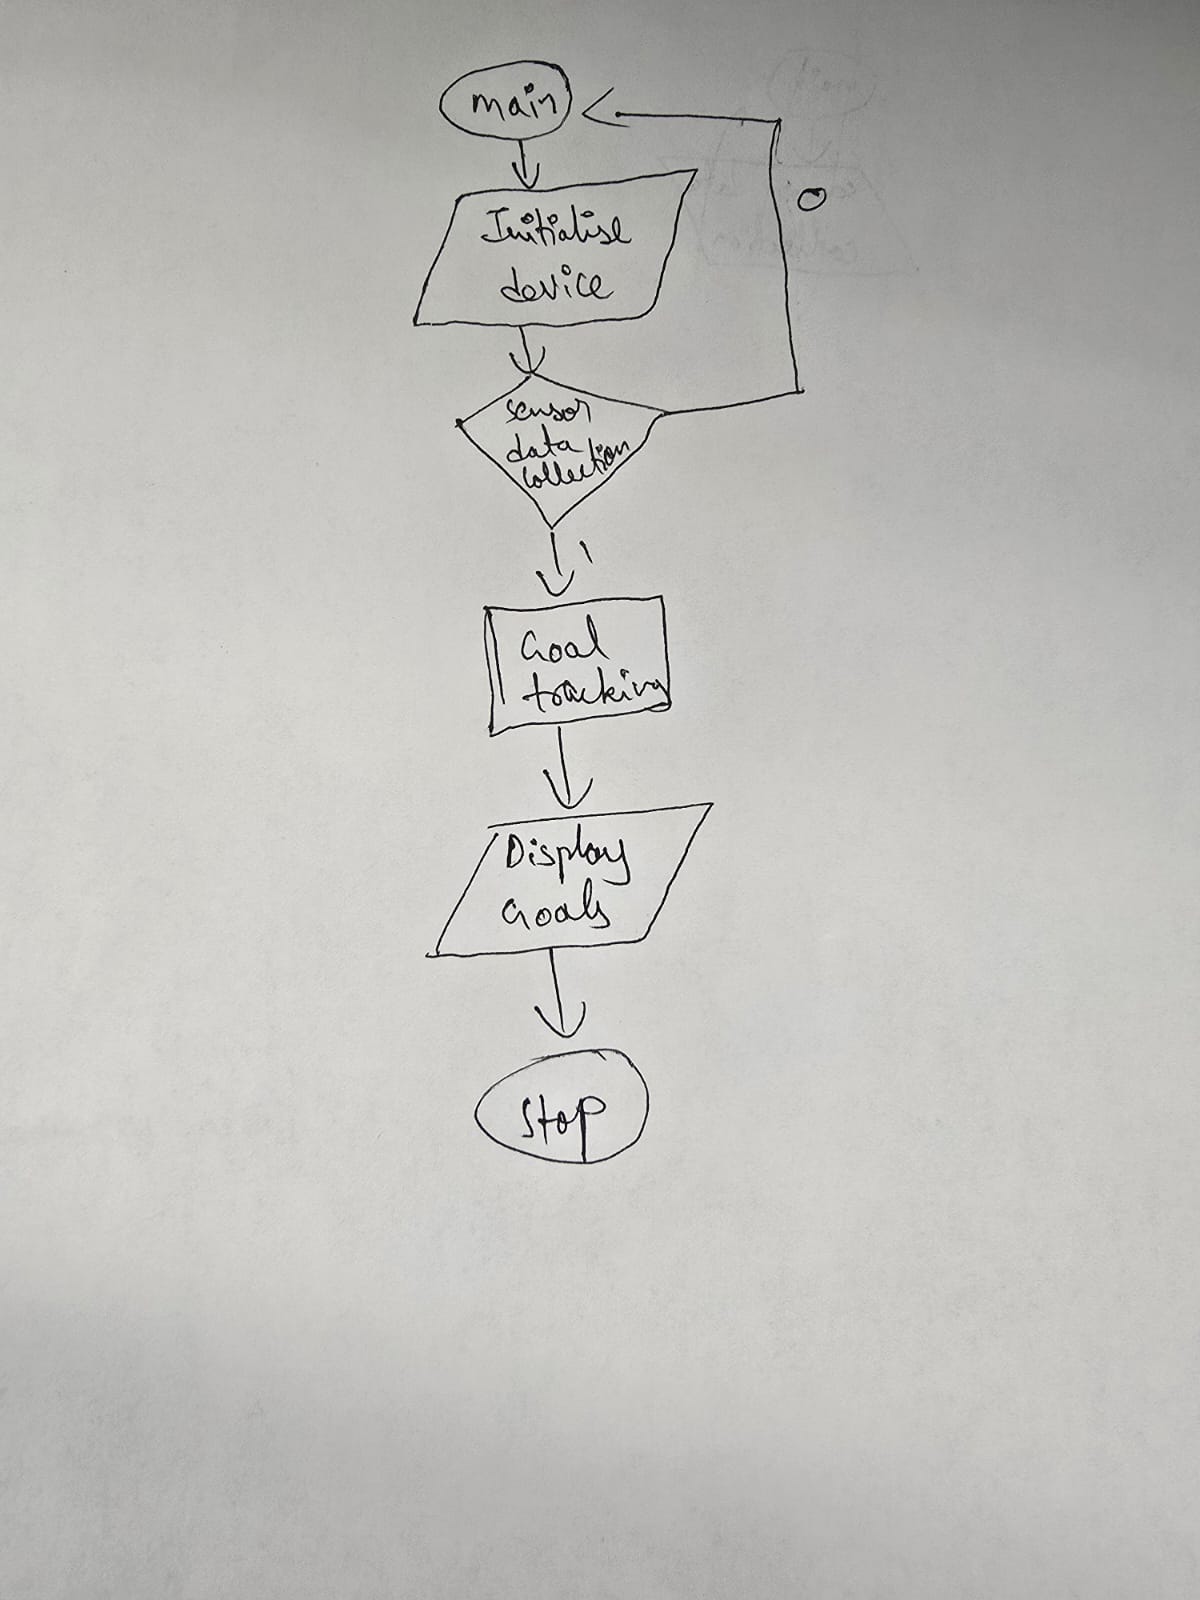 main
0
Initialise
device
sensor
data
collection
1
Goal
tracking
Display
Goals
Stop